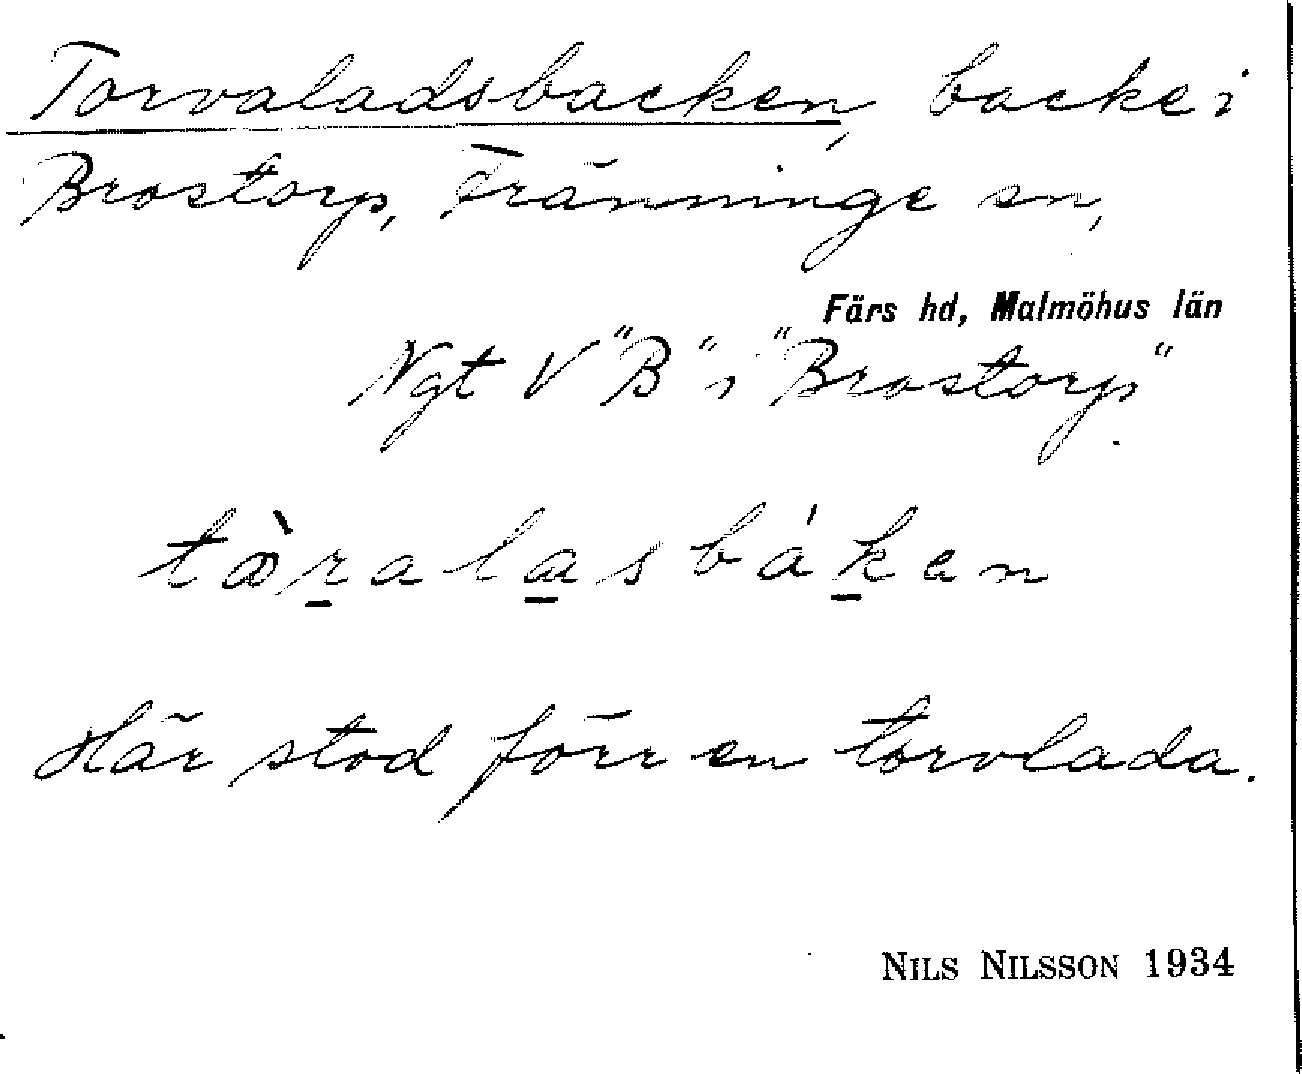 Torvaladsbacken, backe i
Brostorp, Fränninge sn,
Färs hd, Malmöhus län
Ngt V "B" i "Brostorp".
Här stod förr en torvlada.
NILS NILSSON 1934